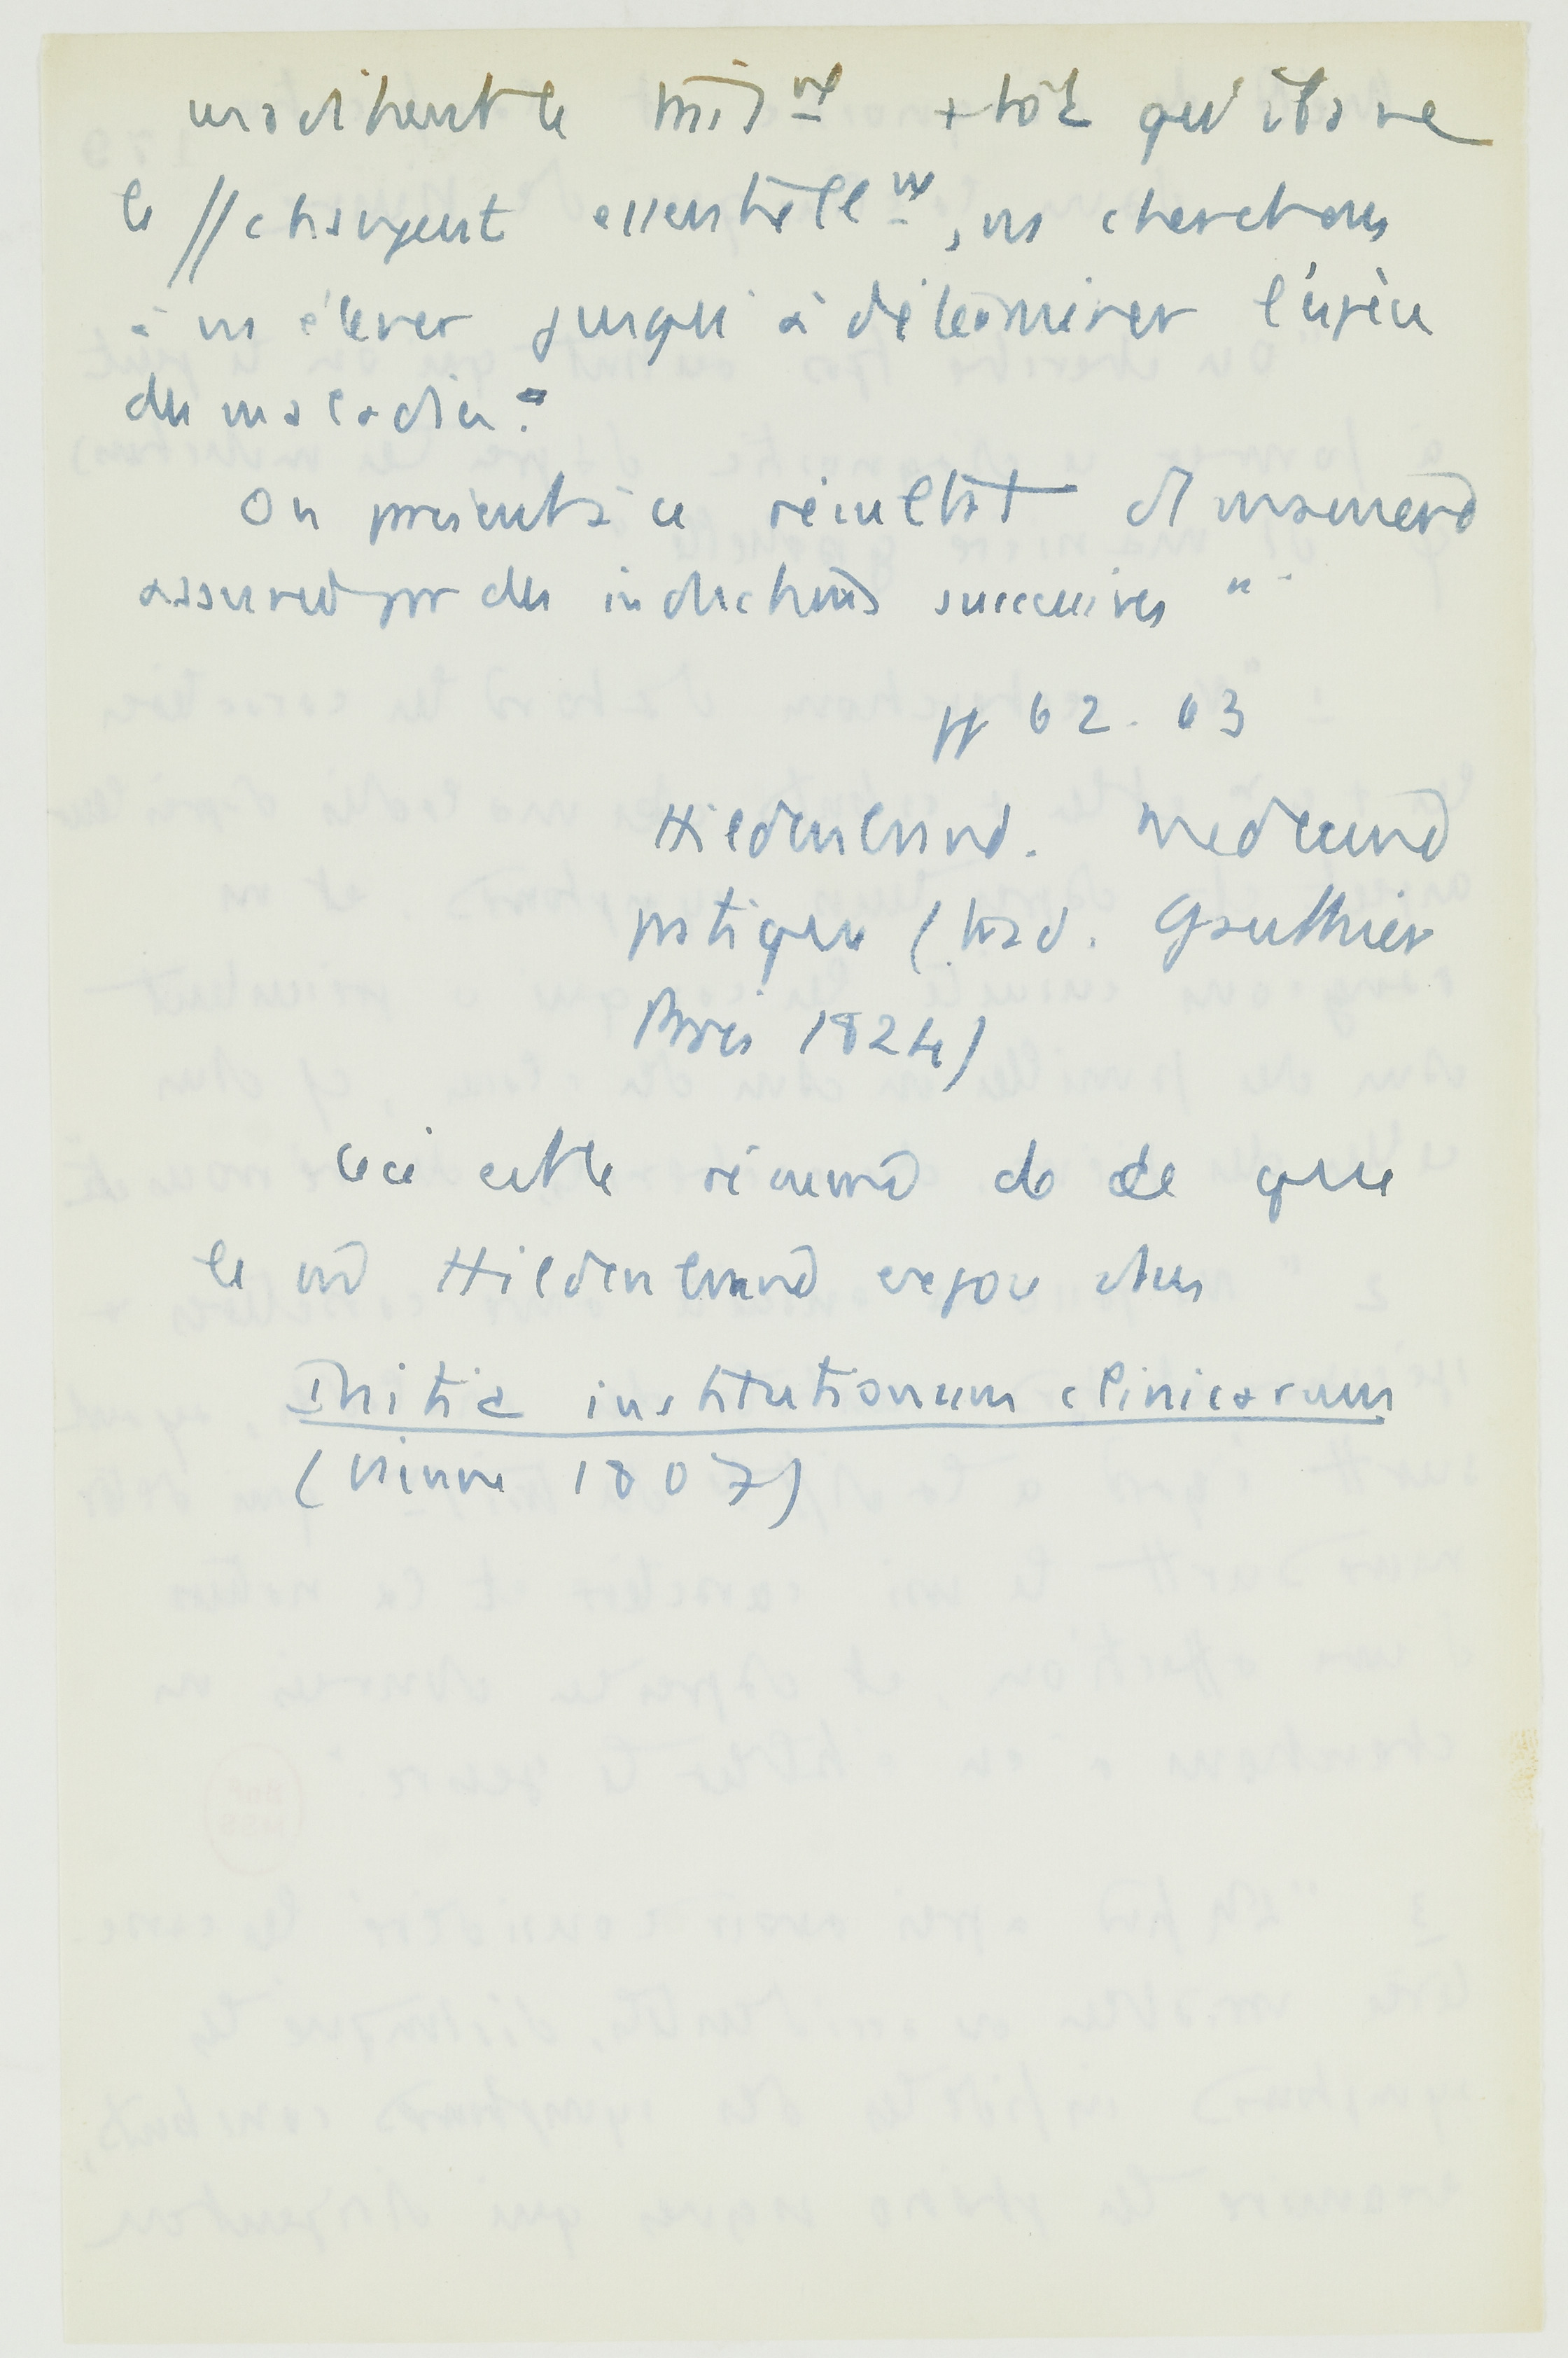 modifient le trait^nt + tôt qu'ils ne
le // changent essentiell^nt, ns cherchons
à ns élever jusqu'à déterminer l'espèce
des maladies."
On parvient à ce résultat d'
assurée par des inductions successives "
pp 62. 63
Hildenbrand. Médecine
pratique (trad. Gauthier
Paris 1824)
Ceci est le résumé de ce que
le Hildenbrand expose dans
Initia institutionum clinicarum
(Vienne 1807)